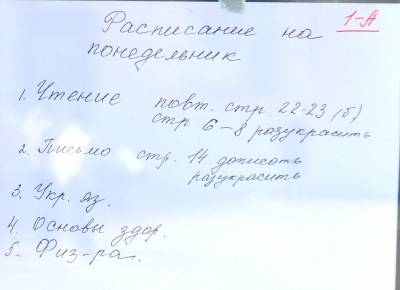 Расписание на
1-А
понедельник
1. Чтение повт. стр. 22-23 (б)
стр 6-8 разукрасить
2. Письмо стр. 14 дописать
разукрасить
3. Укр. яз.
4. Основы здор.
5. Физ-ра.